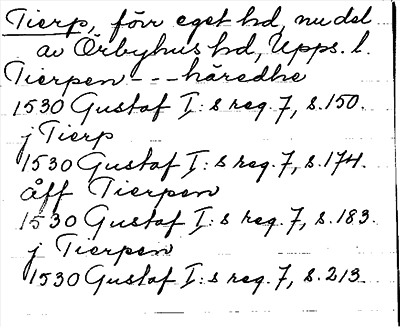 Tierp, förr eget hd, nu del
av Örbyhus hd, Upps. l.
Tierpen - - - häredhe
1530 Gustaf I:s reg. 7, s. 150.
j Tierp
1530 Gustaf I:s reg. 7, s. 174.
åff Tierpen
1530 Gustaf I:s reg. 7, s. 183.
j Tierpen
1530 Gustaf I:s reg. 7, s. 213.